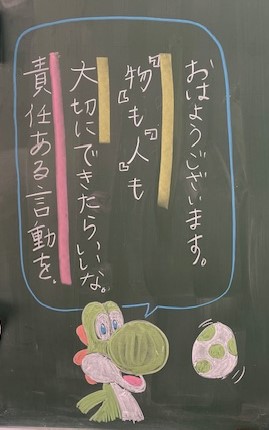 おはようございます。
『物』も『人』も
大切にできたらいいな。
責任ある言動を、